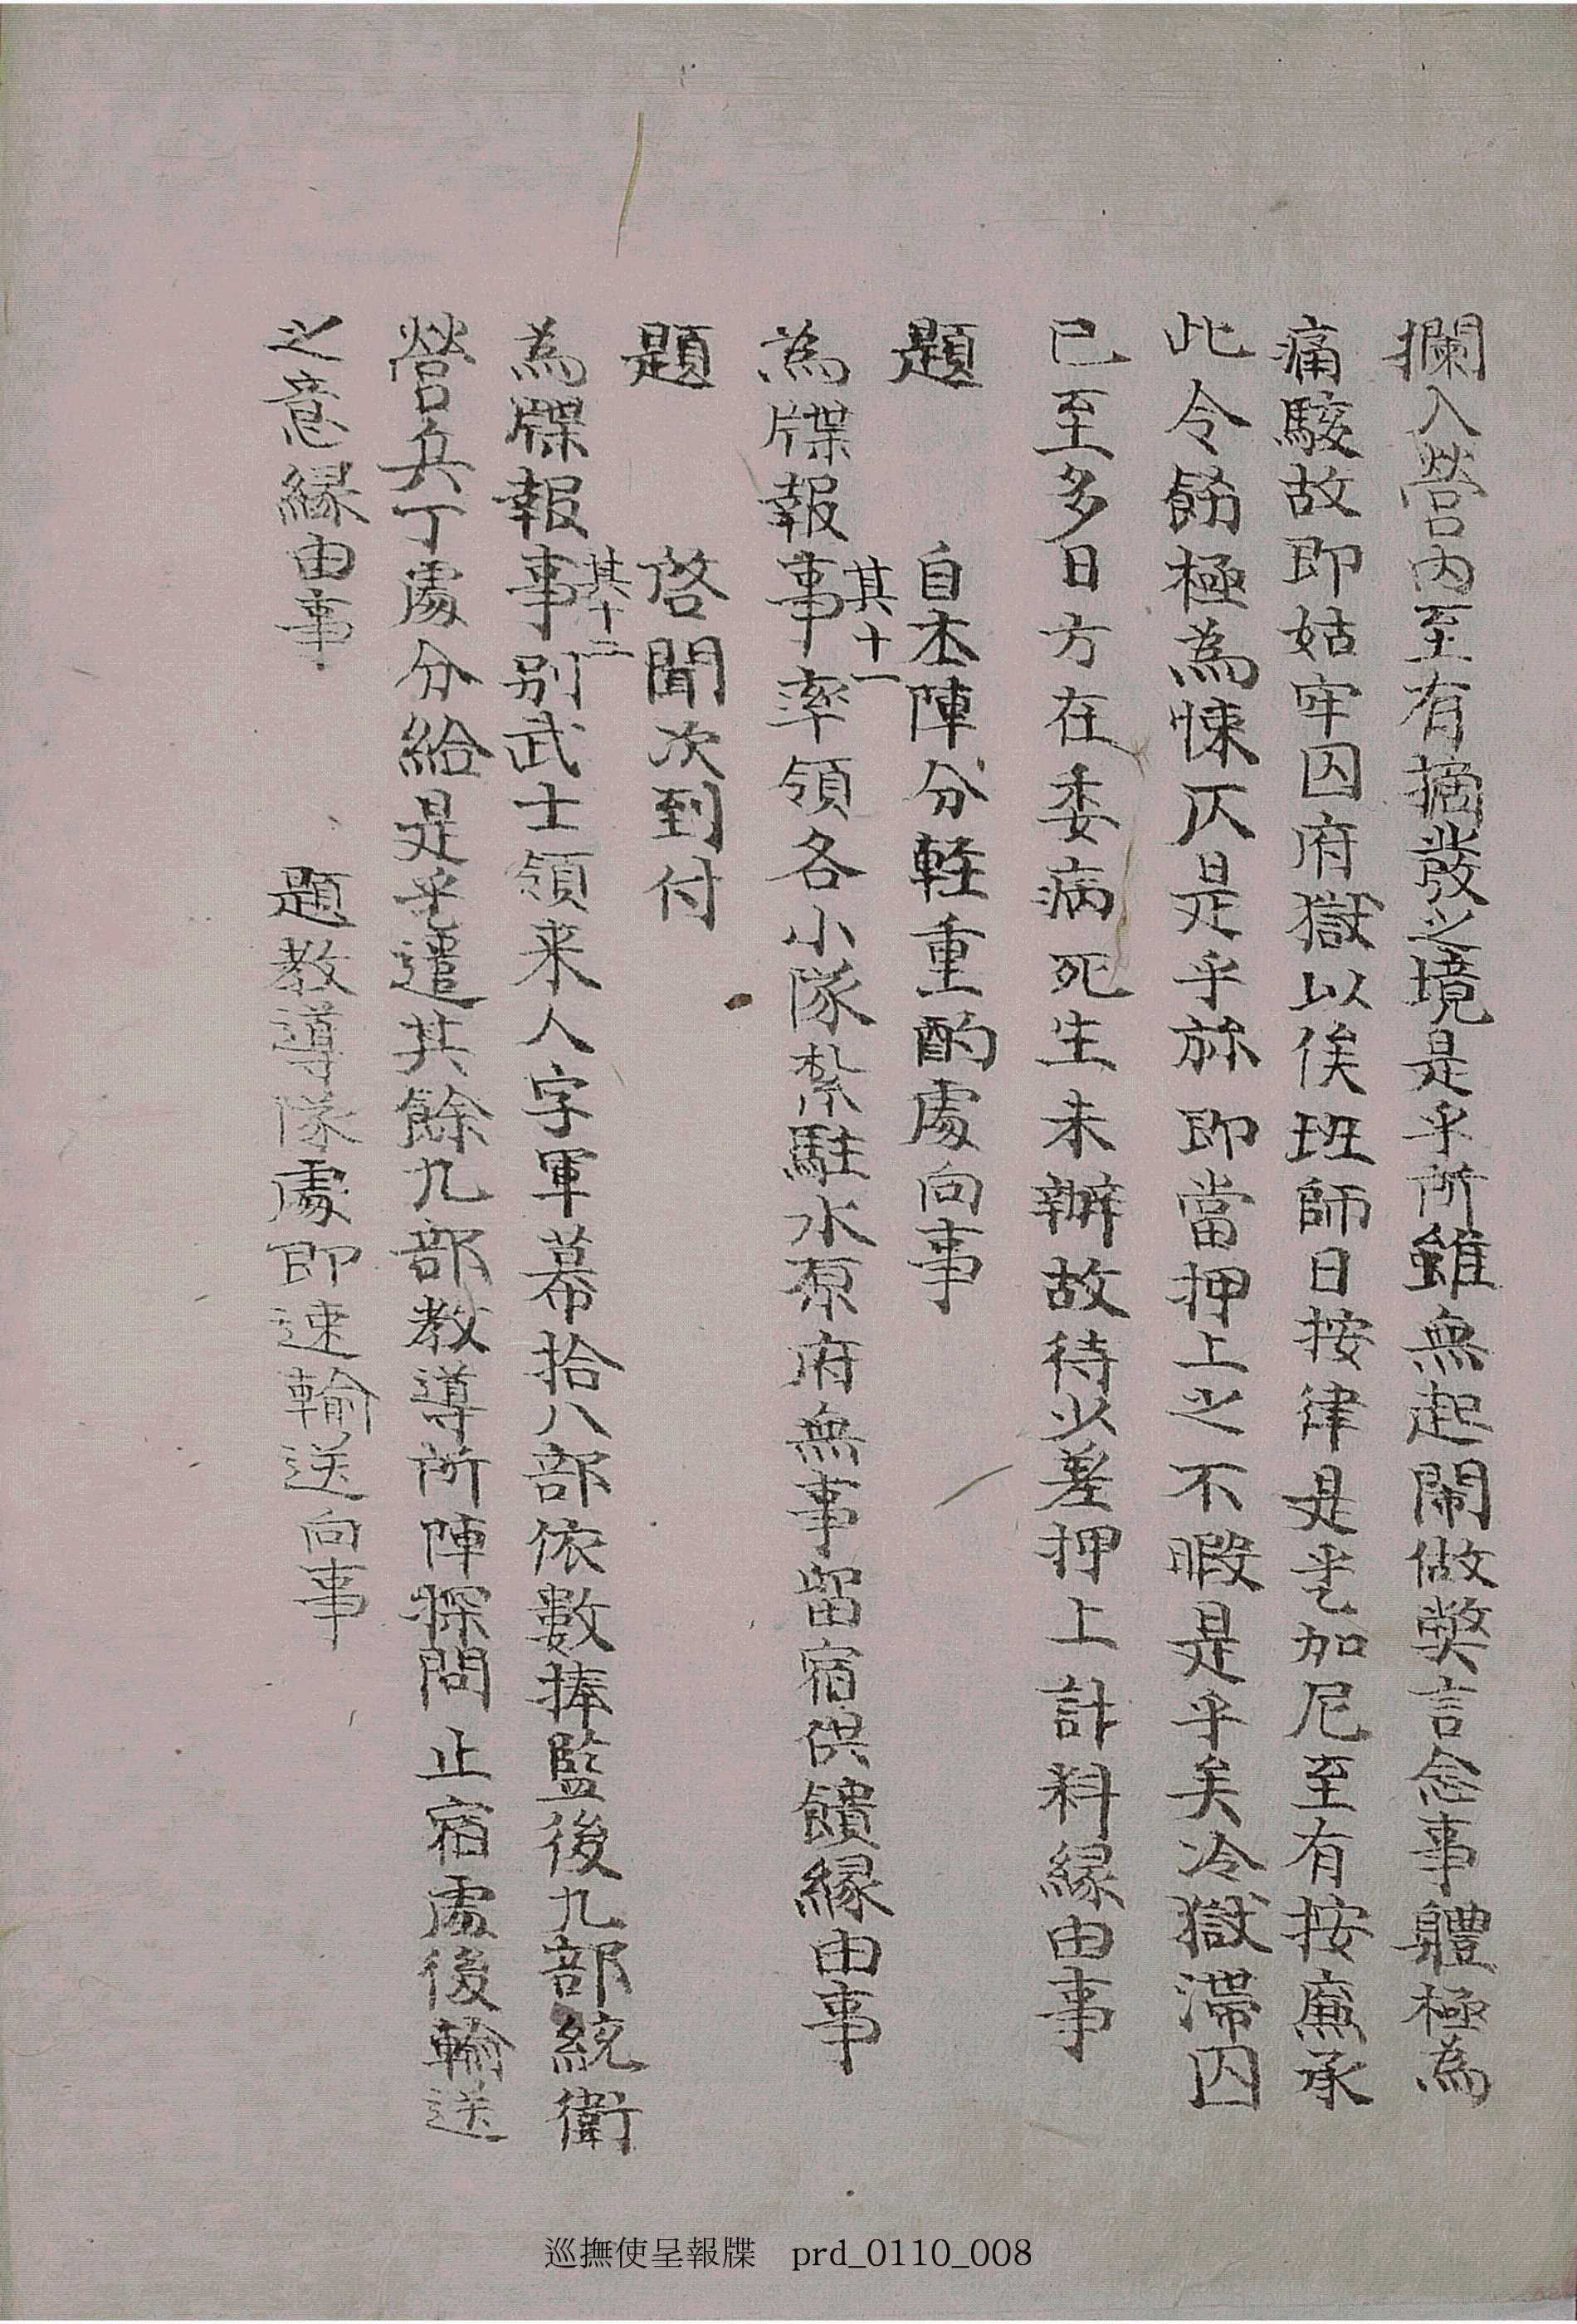 攔入營內至有摘發之境是乎所雖無起鬧做獘言念事軆極爲
痛駭故即姑牢囚府獄以俟班師日按律是乎乙加尼至有按廉承
此令飭極爲悚仄是乎旀即當押上之不暇是乎矣冷獄滯囚
已至多日方在委病死生未辦故待少差押上計料緣由事
題　自本陣分輕重酌處向事
爲牒報事其十一率領各小隊紮駐水原府無事留宿供饋緣由事
題　啓聞次到付
爲牒報事其十二別武士領来人字軍幕拾八部依數捧監後九部統衛
營兵丁處分給是乎遣其餘九部教導所陣探問止宿處後輸送
之意緣由事　題教導隊處即速輸送向事
巡撫使呈報牒　prd_0110_008